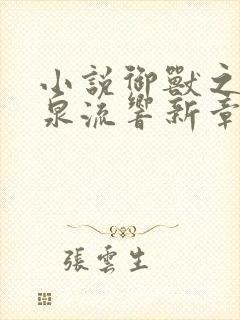 小説御獸之
泉流響新章
張雲生